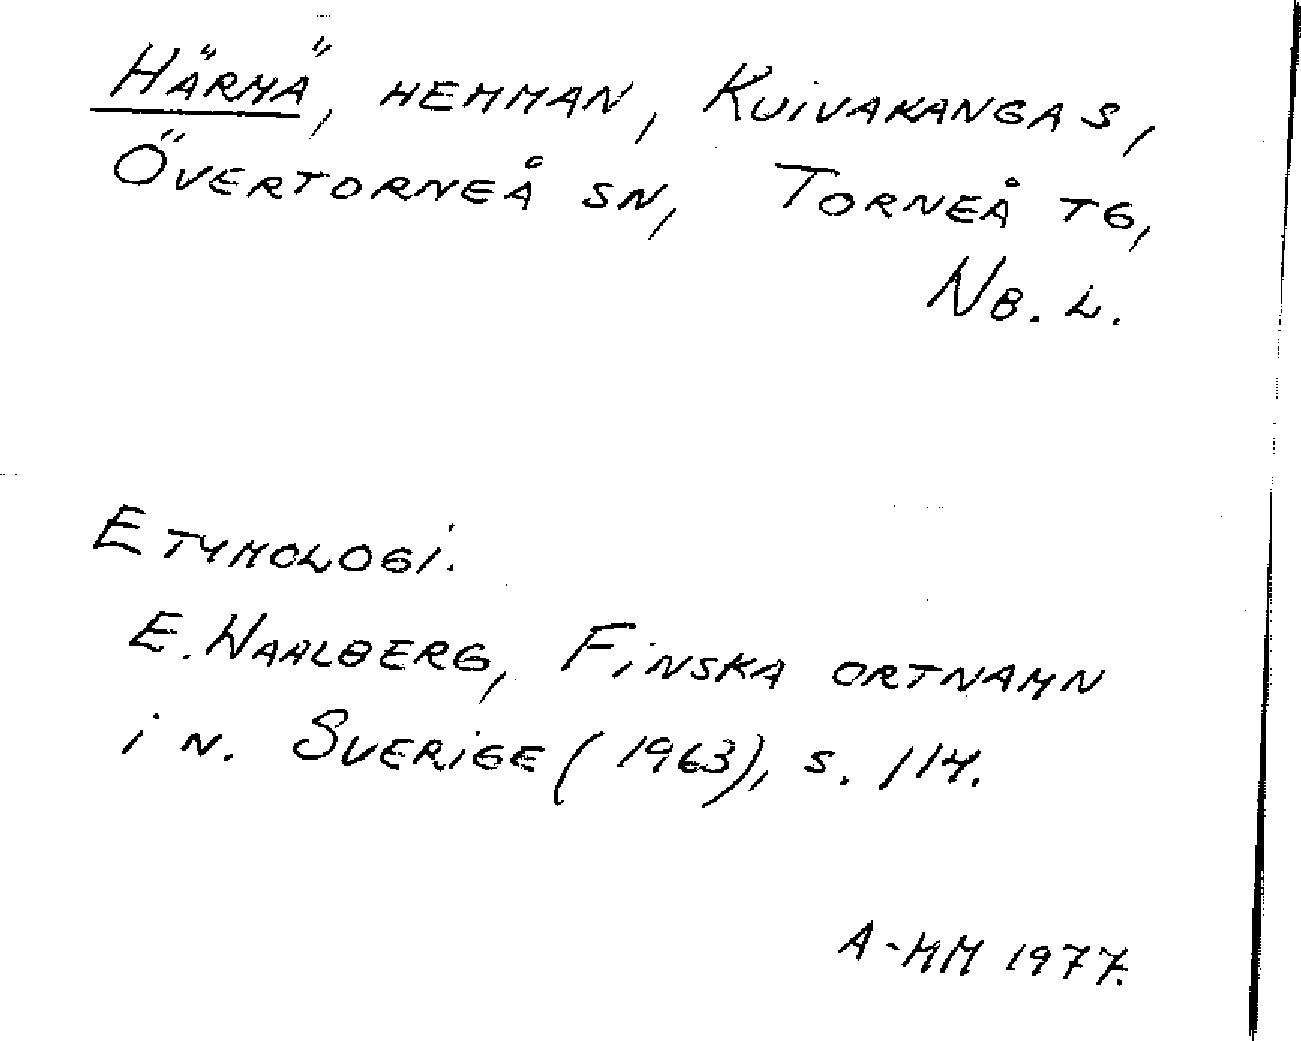 Härmä, hemman, Kuivakangas,
Övertorneå sn, Torneå tg,
Nb. l.
Etymologi.
E. Wahlberg, Finska ortnamn
i n. Sverige (1963), s. 114.
A-MM 1977.